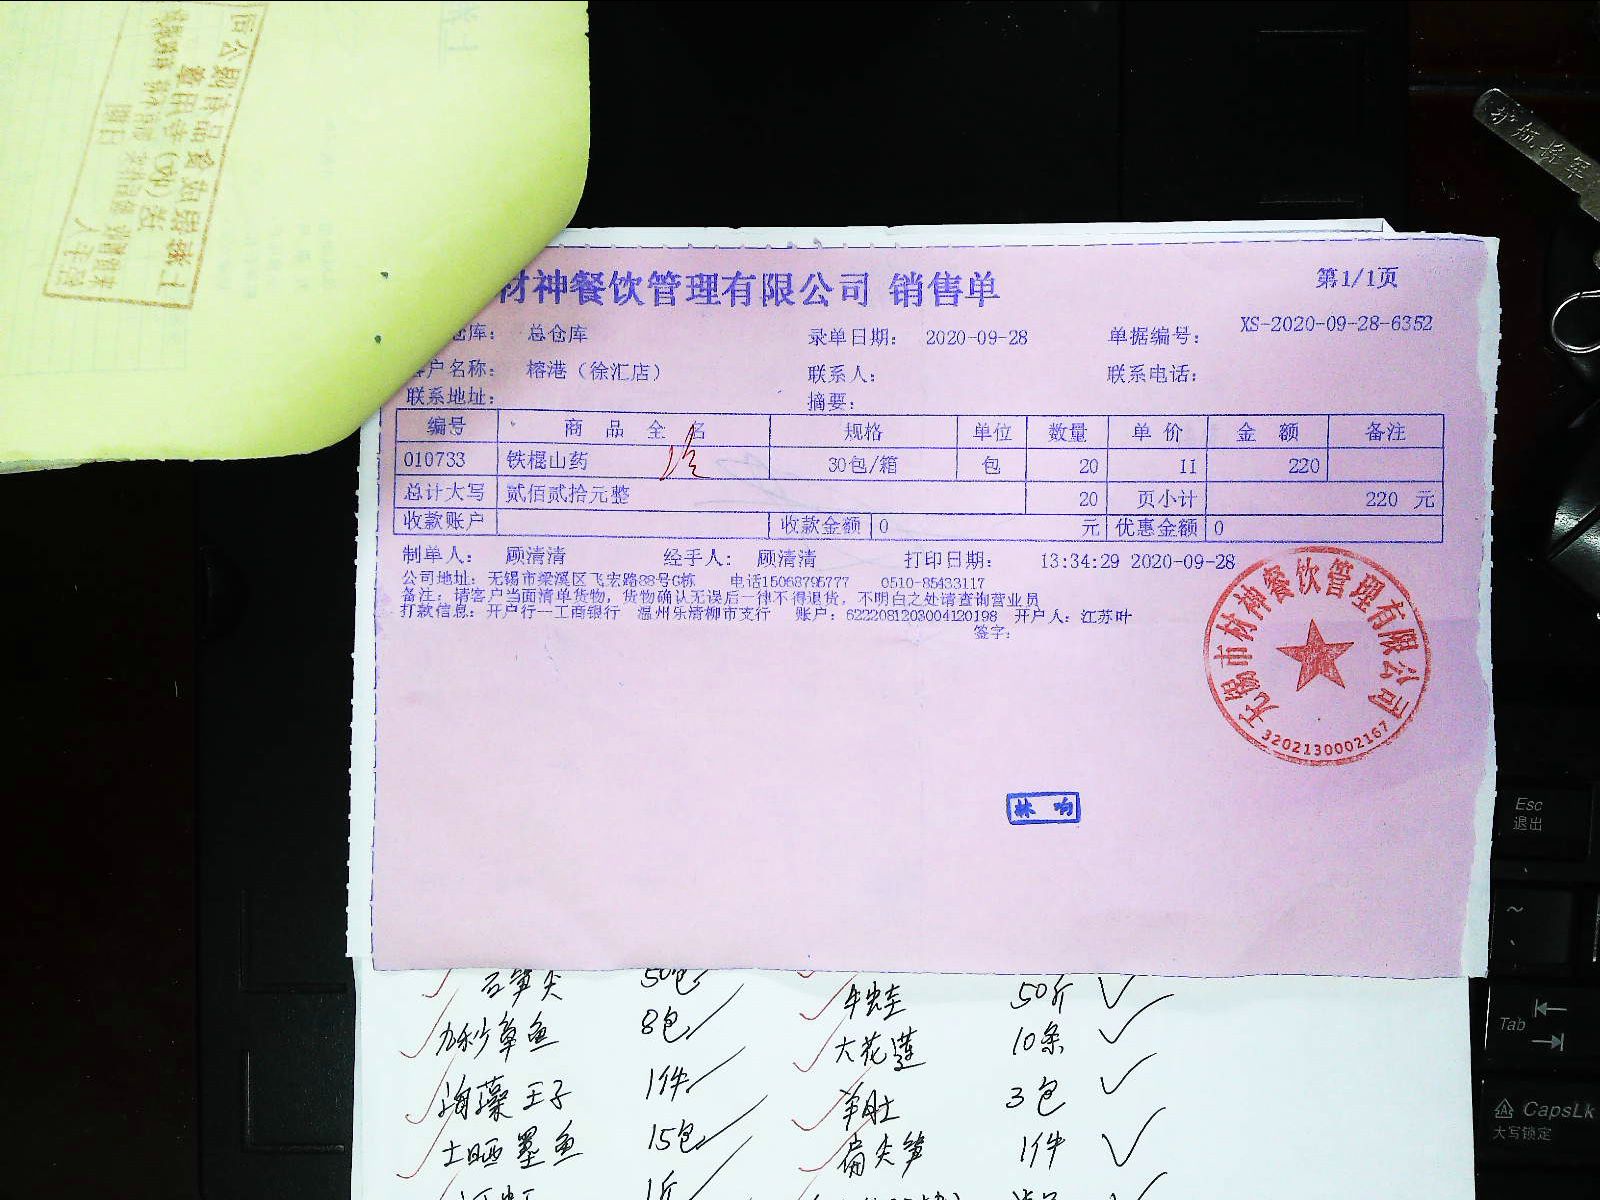 材神餐饮管理有限公司 销售单
第1/1页
仓库： 总仓库 录单日期： 2020-09-28 单据编号： XS-2020-09-28-6352
客户名称： 榕港（徐汇店） 联系人： 联系电话：
联系地址： 摘要：
编号 商 品 全 名 规格 单位 数量 单 价 金 额 备注
010733 铁棍山药 30包/箱 包 20 11 220
总计大写 贰佰贰拾元整 20 页小计 220 元
收款账户 收款金额 0 元 优惠金额 0
制单人： 顾清清 经手人： 顾清清 打印日期： 13:34:29 2020-09-28
公司地址：无锡市梁溪区飞宏路88号C栋 电话15068795777 0510-85433117
备注：请客户当面清单货物，货物确认无误后一律不得退货，不明白之处请查询营业员
打款信息：开户行一工商银行 温州乐清柳市支行 账户：6222081203004120198 开户人：江苏叶
签字：
无锡市材神餐饮管理有限公司
3202130002167
林
50包 50斤
8包 大花莲 10条
海藻王子 1件 羊肚 3包
墨鱼 15包 扁尖笋 1件
1斤
护航将军
Esc
退出
Tab
CapsLk
大写锁定